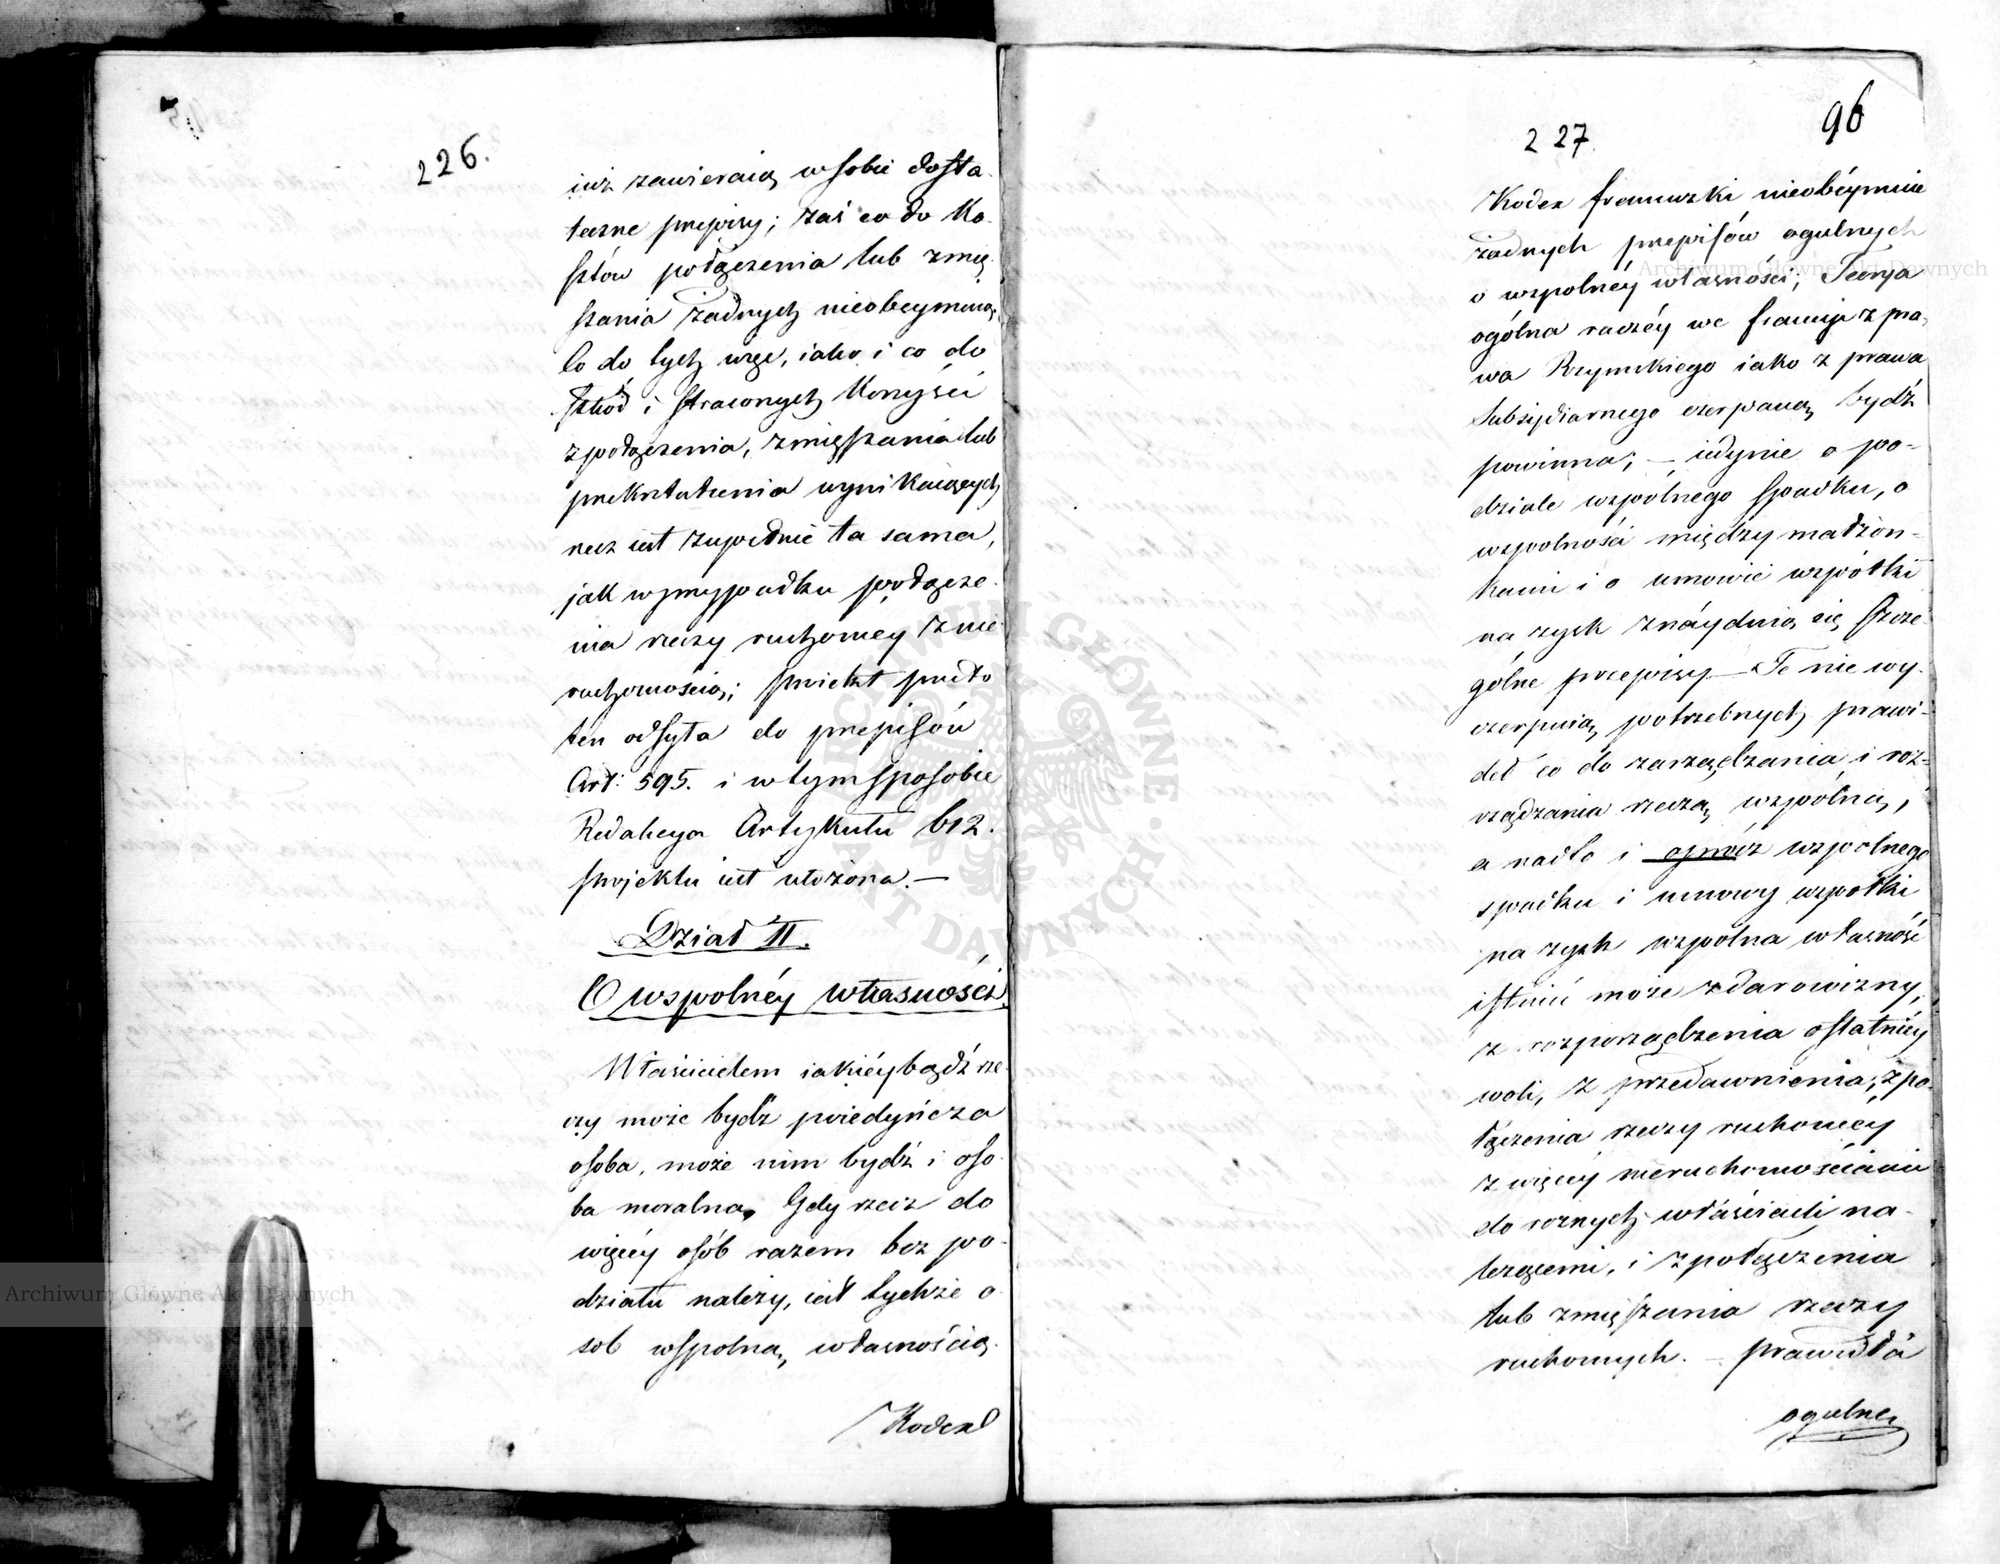 226.
iuż zawieraią w sobie dosta-
teczne przepisy; zaś co do ko-
sztów połączenia lub zmię-
szania żadnych nieobeymuią.
Co do tych więc, iako i co do
szkód i straconych korzyści
z połączenia, zmięszania lub
przekształcenia wynikaiących
rzecz iest zupełnie ta sama,
jak w przypadku połącze-
nia rzeczy ruchomey z nie-
ruchomością; proiekt przeto
ten odsyła do przepisów
Art: 595. i w tym sposobie
Redakcya Artykułu 612.
projektu iest ułożona. —
Dział II.
O wspolnéy własności.
Właścicielem iakiéybądź rze-
czy może bydź poiedyńcza
osoba, może nim bydź i oso-
ba moralna. Gdy rzecz do
więcéy osób razem bez po-
działu należy, iest tychże o-
sob wspolną własnością.
Kodex
227
96
Kodex francuzki nieobéymuie
żadnych przepisów ogulnych
o wzpolnéy własności; Teorya
ogólna raczéy we francyi z pra-
wa Rzymskiego iako z prawa
Subsydiarnego czerpaną bydź
powinna; — iedynie o po-
dziale wzpólnego spadku, o
wzpolności między małżon-
kami i o umowie wzpółki
na zysk znáyduią się szcze-
gólne przepisy — Te nie wy-
czerpuią potrzebnych prawi-
deł co do zarządzania i roz-
rządzania rzeczą wzpólną,
a nadto i oprócz wzpolnego
spadku i umowy wzpołki
na zysk wzpólna własność
istnieć może z darowizny,
z rozporządzenia ostatniéy
woli, z przedawnienia, z po-
łączenia rzeczy ruchoméy
z więcéy nieruchomościami
do roznych właścicieli na-
leżącemi, i z połączenia
lub zmięszania rzeczy
ruchomych. — prawidła
ogulne
Archiwum Główne Akt Dawnych
Archiwum Główne Akt Dawnych
ARCHIWUM GŁÓWNE • AKT DAWNYCH •